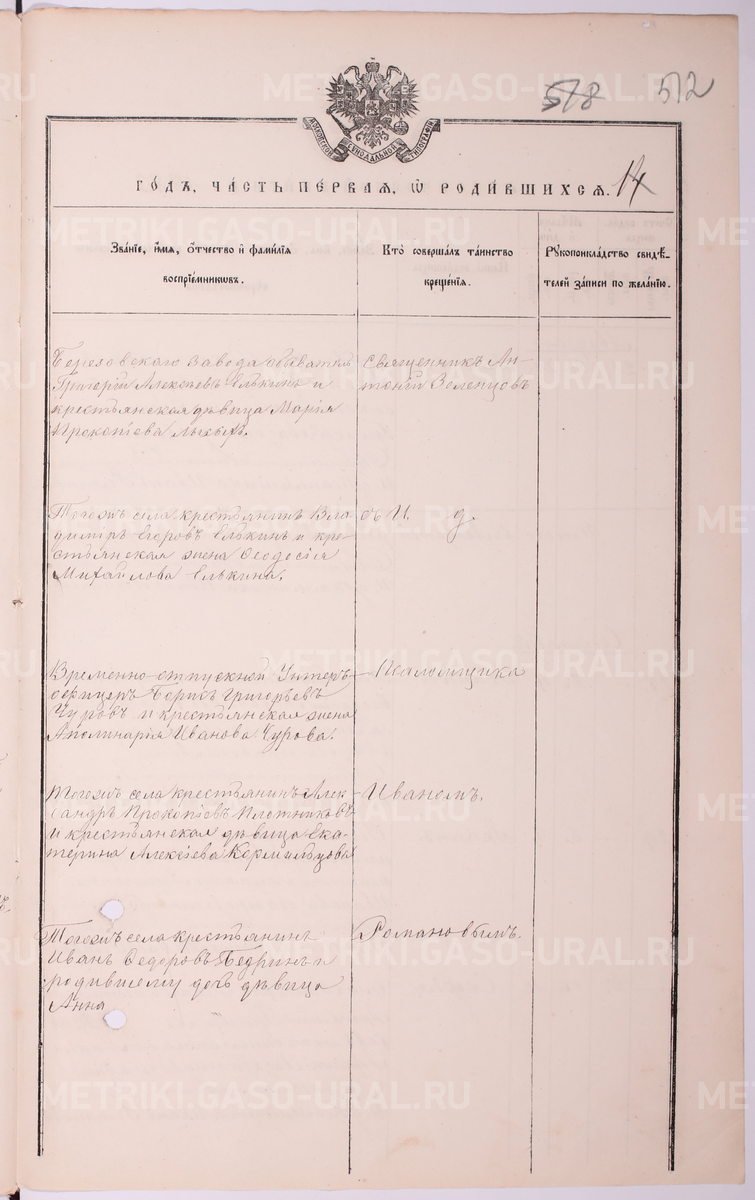 578 512
МОСКОВСКОЙ СѴНОДАЛЬНОЙ ТИПОГРАФІИ
ГО́ДЪ, ЧА́СТЬ ПЕ́РВАЯ, Ѡ҆ РОДИ́ВШИХСЯ. 14
Зва́нїе, и҆́мя, ѻ҆́тчество и҆ фами́лїя
воспрїе́мникωвъ.
Кто̀ соверша́лъ та́инство
креще́нїя.
Рꙋкоприкла́дство свидѣ́-
телей за́писи по жела́нїю.
Березовскаго Завода обыватель
Григорій Алексѣевъ Елькинъ и
крестьянская дѣвица Марія
Прокопіева
Священникъ Ан-
тоній Зеленцовъ
Тогожъ села крестьянинъ Вла-
димiръ Егоровъ Елькинъ и кре-
стьянская жена Ѳеодосія
Михайлова Елькина.
съ И. д.
Временно-отпускной Унтеръ-
офицеръ Борисъ Григорьевъ
Чуровъ и крестьянская жена
Аполинарія Иванова Чурова.
Псаломщика
Тогожъ села крестьянинъ Алек-
сандръ Прокопіевъ Плотниковъ
и крестьянская дѣвица Ека-
терина Алексіева Кормильцова
Иваномъ.
Тогожъ села крестьянинъ
Иванъ Ѳедоровъ Бедринъ и
родившему дочь дѣвица
Анна
Романовымъ.
METRIKI.GASO-URAL.RU